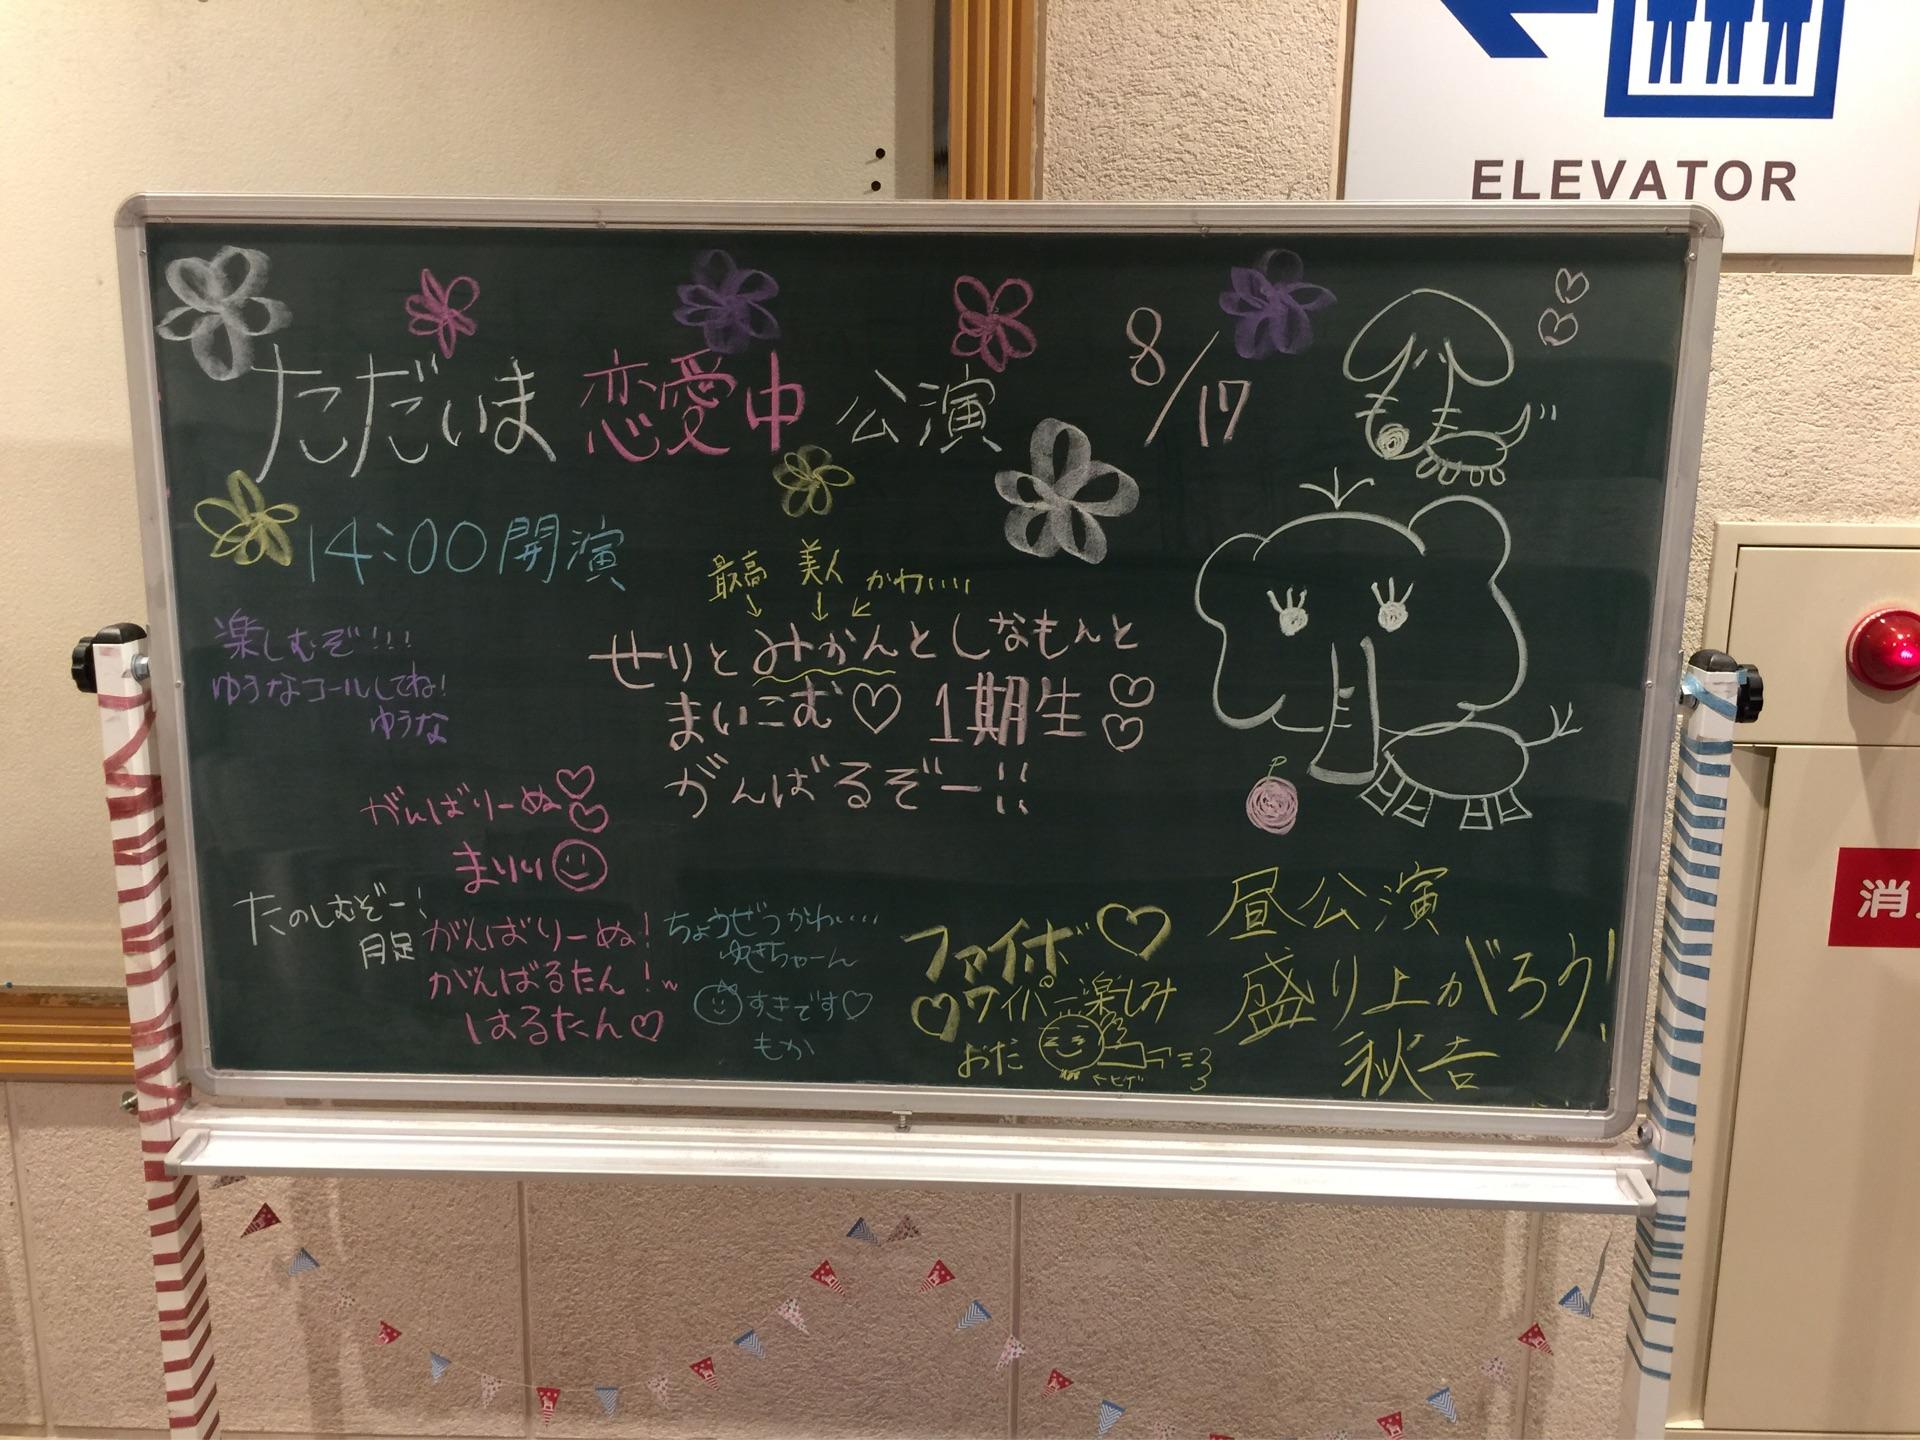 ELEVATOR
ただいま 恋愛中 公演 8/17
14:00開演
最高 美人 かわいい
楽しむぞ!!!
ゆうなコールしてね!
ゆうな
せりとみかんとしなもんと
まいこむ♡ 1期生♡♡
がんばるぞー!!
がんばりーぬ♡♡
まりい
たのしむぞー!
月足
がんばりーぬ!
がんばるたん!
はるたん♡
ちょうぜつかわいい
ゆきちゃーん
すきです♡
もか
ファイボ♡
♡ワイパー楽しみ
おだ
←ヒゲ
昼公演
盛り上がろう!
秋吉
消